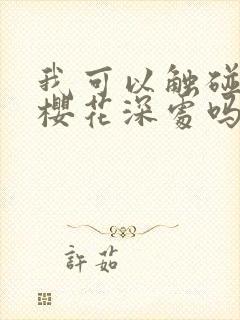 我可以触碰
櫻花深處吗
許茹